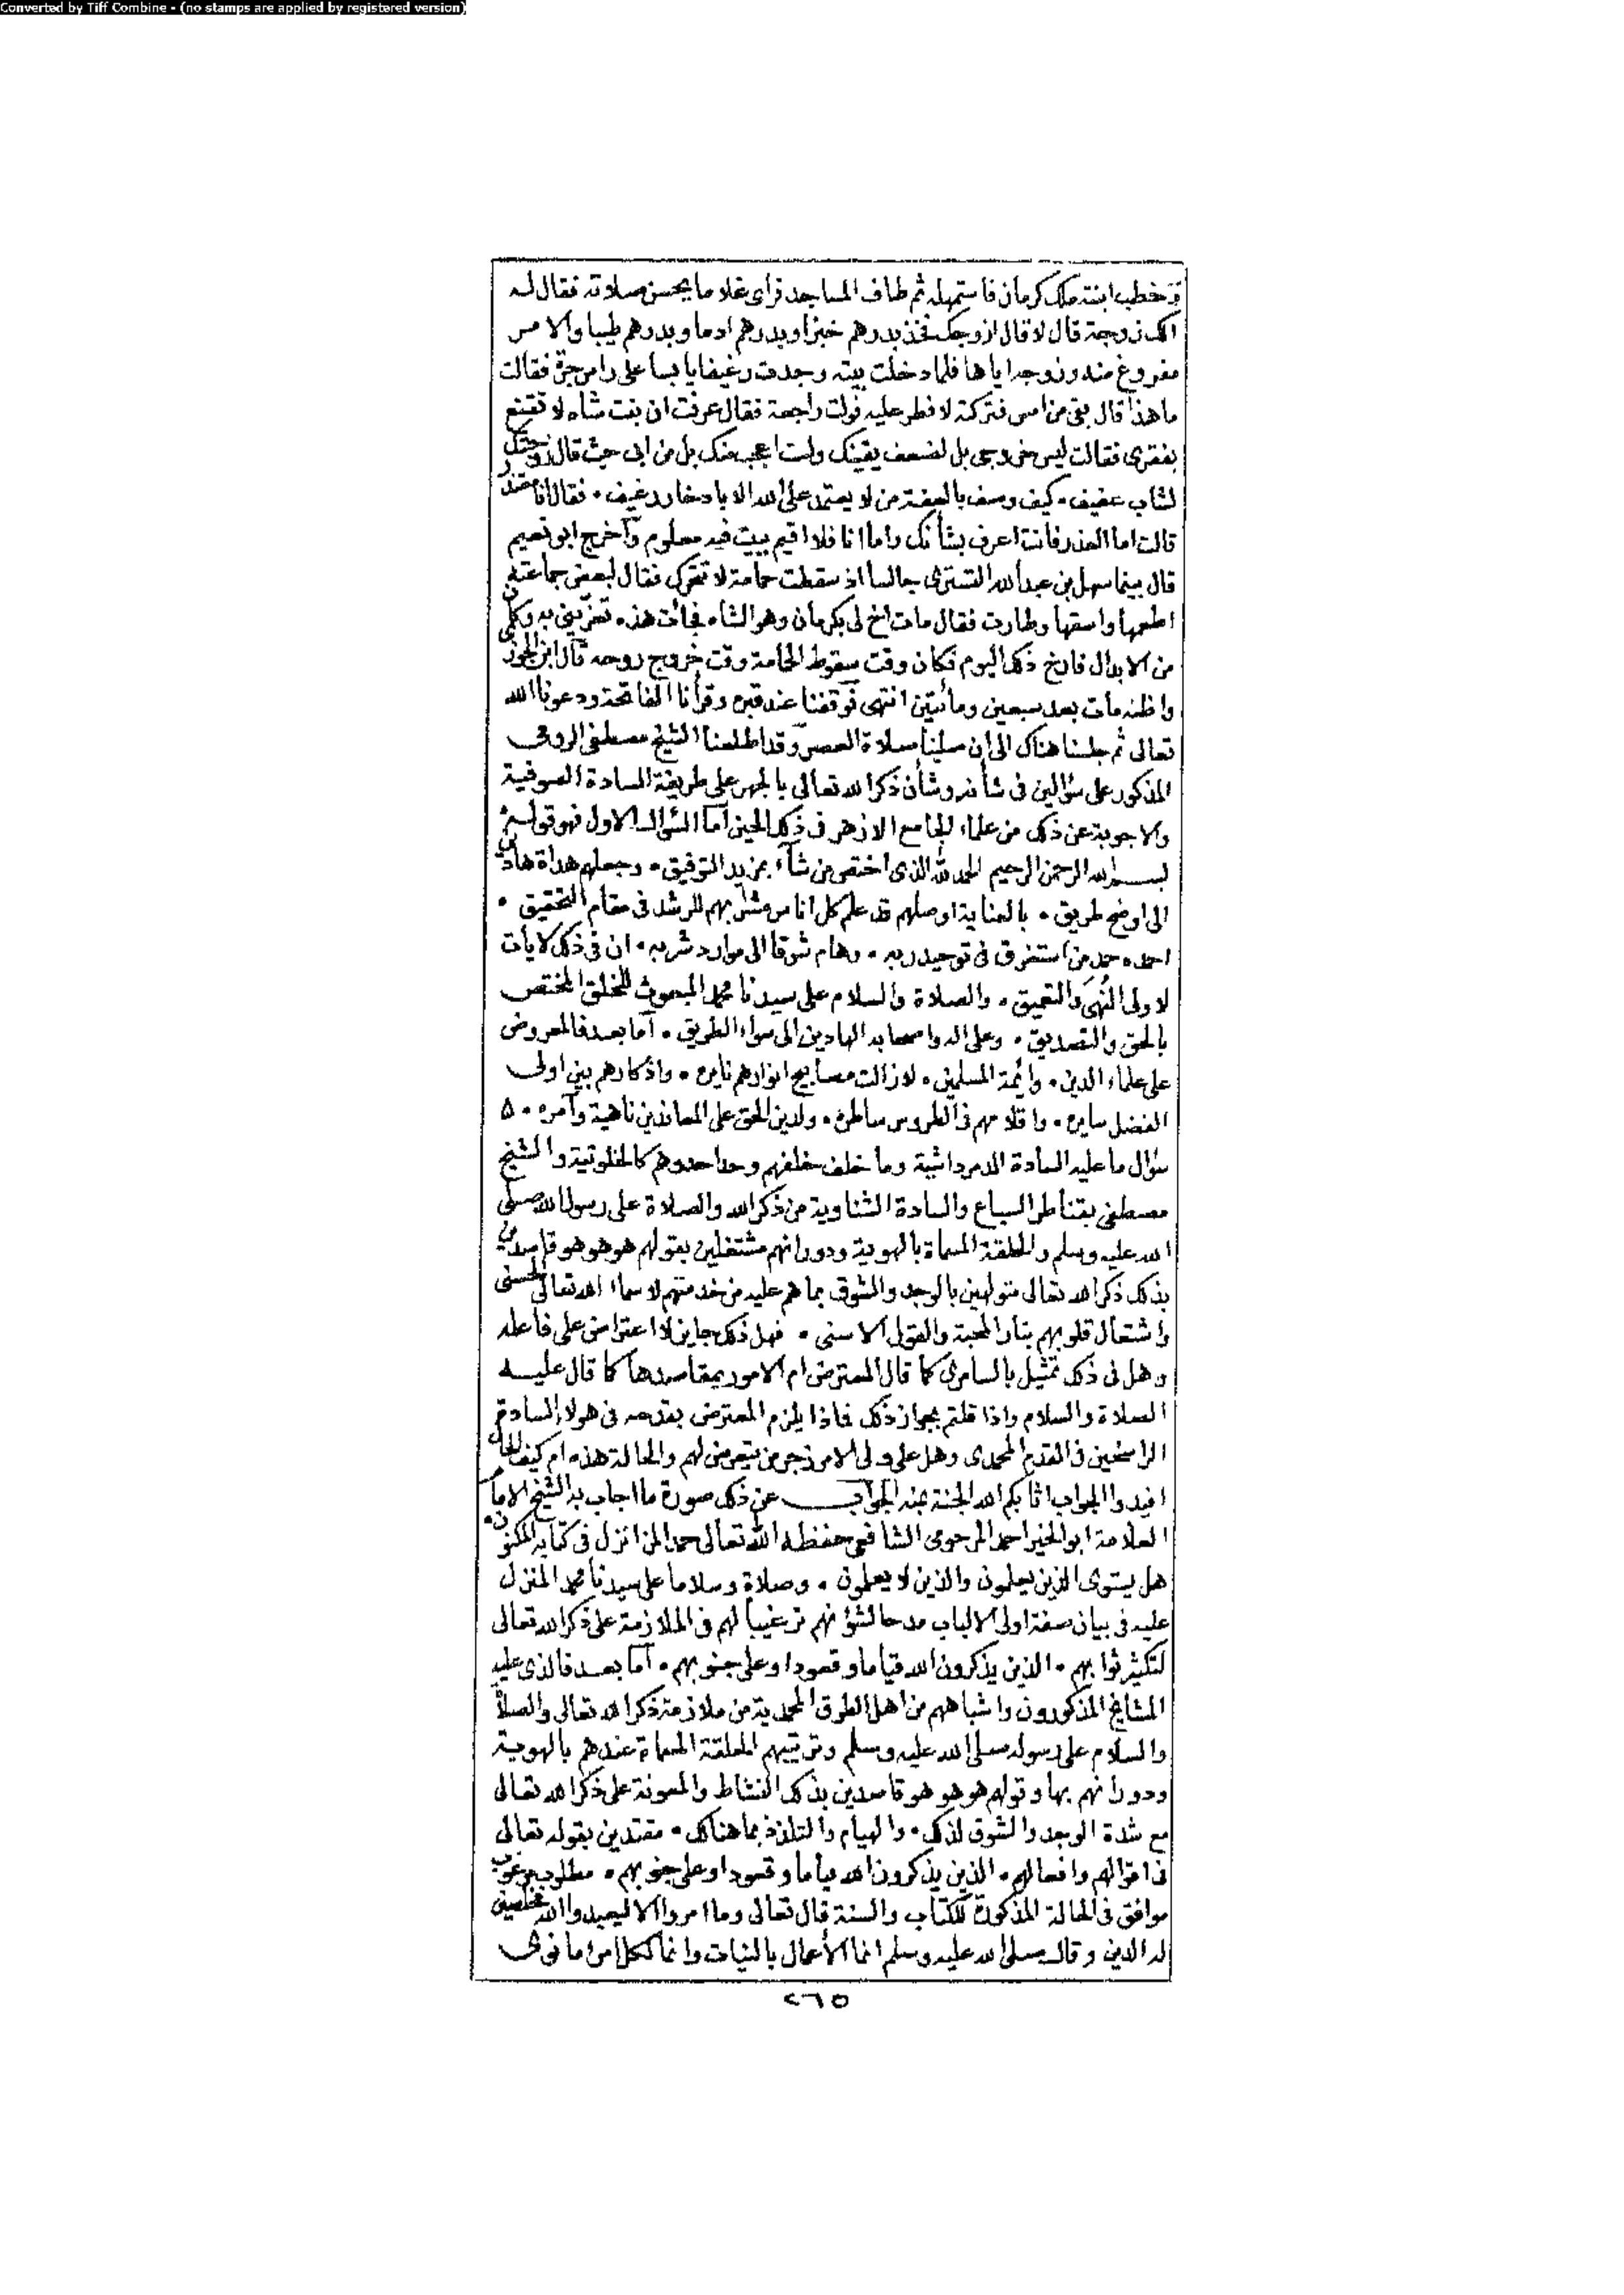 Converted by Tiff Combine - (no stamps are applied by registered version)
وخطب ابنته ملك كرمان فاستمهله ثم طاف المساجد فرأى غلاما يحسن صلاته فقال له
الك زوجة قال لا قال ازوجك فخذ بدرهم خبزا وبدرهم ادما وبدرهم طيبا والامر
مفروغ منه وزوجه اياها فلما دخلت بيته وجدت رغيفا يابسا على راس جرة فقالت
ما هذا قال بقى من امس فتركته لا فطر عليه فولت راجعة فقال عرفت ان بنت شاه لا تقنع
بفقرى فقالت ليس خروجى بل لضعف يقينك ولست اعجب منك بل من ابى حيث قال زوجتك
لشاب عفيف ٠ كيف وصف بالعفة من لا يعتمد على الله الا بادخار رغيف ٠ فقال انا معتذر
قالت اما العذر فانت اعرف بشأنك واما انا فلا اقيم ببيت فيه معلوم وآخرج ابو نعيم
قال بينما سهل بن عبد الله التسترى جالسا اذ سقطت حمامة لا تتحرك فقال لبعض جماعته
اطعمها واسقها وطارت فقال مات اخ لى بكرمان وهو الشاه فجأت هذه تعزينى به وكان
من الابدال فارخ ذلك اليوم فكان وقت سقوط الحمامة وقت خروج روحه قال ابن الجوزى
واظنه مات بعد سبعين ومأتين انتهى فوقفنا عند قبره وقرأنا الفاتحة ودعونا الله
تعالى ثم جلسنا هناك الى ان صلينا صلاة العصر وقد اطلعنا الشيخ مصطفى الرومى
المذكور على سؤالين فى شأنه وشأن ذكر الله تعالى بالجهر على طريقة السادة الصوفية
والاجوبة عن ذلك من علماء الجامع الازهر فى ذلك الحين أما السؤال الاول فهو قوله
بسم الله الرحمن الرحيم الحمد لله الذى اختص من شاء بمزيد التوفيق ٠ وجعلهم هداة هادين
الى اوضح طريق ٠ بالعناية اوصلهم قد علم كل اناس مشربهم للرشد فى مقام التحقيق ٠
احمده حمد من استغرق فى توحيد ربه ٠ وهام شوقا الى موارد شربه ٠ ان فى ذلك لايات
لاولى النهى والتعميق ٠ والصلاة والسلام على سيدنا محمد المبعوث للخلق المختص
بالحق والتصديق ٠ وعلى اله واصحابه الهادين الى سواء الطريق ٠ أما بعد فالمعروض
على علماء الدين ٠ وائمة المسلمين ٠ لا زالت مصابيح انوارهم نايره ٠ واذكارهم بين اولى
الفضل سايره ٠ واقلامهم فى الطروس ساطره ٠ ولدين الحق على المعاندين ناهية وآمره ٠
سؤال ما عليه السادة الدمرداشية وما خلف خلفهم وحدا حدوهم كالخلوتية والشيخ
مصطفى بقناطر السباع والسادة الشناوية من ذكر الله والصلاة على رسول الله صلى
الله عليه وسلم والحلقة المسماة بالهوية ودورانهم مشتغلين بقولهم هو هو هو قاصدين
بذلك ذكر الله تعالى متولهين بالوجد والشوق بما هم عليه من خدمتهم لاسماء الله تعالى الحسنى
واشتعال قلوبهم بنار المحبة والقول الاسنى ٠ فهل ذلك جايز لا اعتراض على فاعله
وهل فى ذلك تمثيل بالسامرى كما قال المعترض ام الامور بمقاصدها كما قال عليه
الصلاة والسلام واذا قلتم بجواز ذلك فماذا يلزم المعترض بقدحه فى هولاء السادة
الراسخين فى القدم المحمدى وهل على ولى الامر زجر من يتعرض لهم والحالة هذه ام كيف الحال
افيدوا الجواب اثابكم الله الجنة بمنه الجواب عن ذلك صورة ما اجاب به الشيخ الامام
العلامة ابو الخير احمد المرحومى الشافعى حفظه الله تعالى حمدا لمن انزل فى كتابه المكنون ٠
هل يستوى الذين يعلمون والذين لا يعلمون ٠ وصلاة وسلاما على سيدنا محمد المنزل
عليه فى بيان صفة اولى الالباب مدحا لشؤنهم ترغيبا لهم فى الملازمة على ذكر الله تعالى
لتكثير ثوابهم ٠ الذين يذكرون الله قياما وقعودا وعلى جنوبهم ٠ أما بعد فالذى عليه
المشايخ المذكورون واشباههم من اهل الطرق المحمدية من ملازمة ذكر الله تعالى والصلاة
والسلام على رسوله صلى الله عليه وسلم وترتيبهم الحلقة المسماة عندهم بالهوية
ودورانهم بها وقولهم هو هو هو قاصدين بذلك النشاط والمعونة على ذكر الله تعالى
مع شدة الوجد والشوق لذلك ٠ والهيام والتلذذ بما هناك ٠ مقتدين بقوله تعالى
فى اقوالهم وافعالهم ٠ الذين يذكرون الله قياما وقعودا وعلى جنوبهم ٠ مطلوب مرغوب
موافق فى الحالة المذكورة للكتاب والسنة قال تعالى وما امروا الا ليعبدوا الله مخلصين
له الدين وقال صلى الله عليه وسلم انما الأعمال بالنيات وانما لكل امرئ ما نوى
٢٦٥